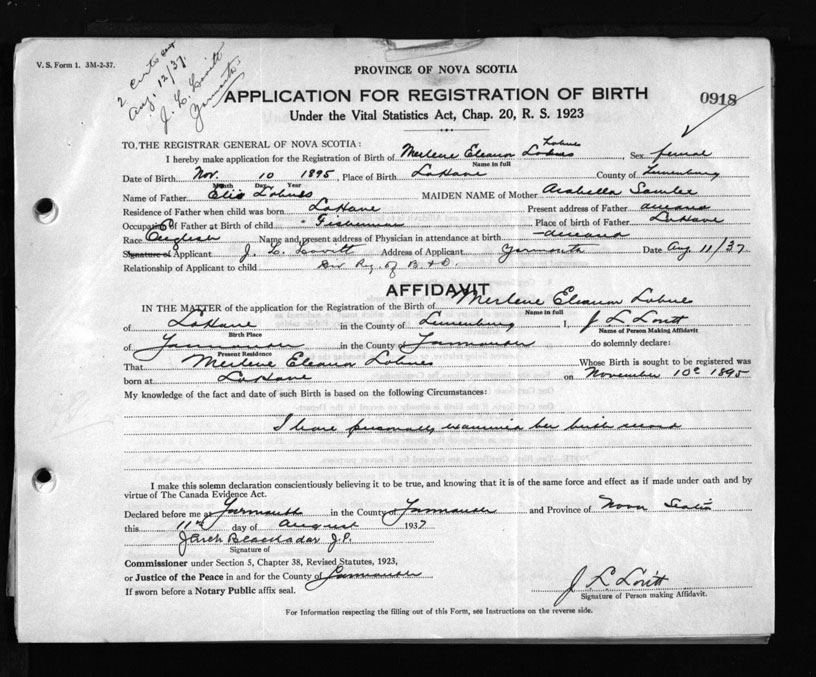 V. S. Form 1. 3M-2-37.
2 certs
Aug. 12/37
J. L. Lovitt
Yarmouth
PROVINCE OF NOVA SCOTIA
APPLICATION FOR REGISTRATION OF BIRTH
0918
Under the Vital Statistics Act, Chap. 20, R. S. 1923
TO, THE REGISTRAR GENERAL OF NOVA SCOTIA:
I hereby make application for the Registration of Birth of Merlene Eleanor Lohnes Sex female
Name in full
Date of Birth Nov. 10 1895, Place of Birth LaHave County of Lunenburg
Month Day Year
Name of Father Elis Lohnes MAIDEN NAME of Mother Arabella
Residence of Father when child was born LaHave Present address of Father deceased
Occupation of Father at Birth of child Fisherman Place of birth of Father LaHave
Race English Name and present address of Physician in attendance at birth deceased
Signature of Applicant J. L. Lovitt Address of Applicant Yarmouth Date Aug 11/37
Relationship of Applicant to child Div Reg. of B & D.
AFFIDAVIT
IN THE MATTER of the application for the Registration of the Birth of Merlene Eleanor Lohnes
Name in full
of LaHave in the County of Lunenburg I, J L Lovitt
Birth Place Name of Person Making Affidavit
of Yarmouth in the County of Yarmouth do solemnly declare:
Present Residence
That Merlene Eleanor Lohnes Whose Birth is sought to be registered was
born at LaHave on November 10th 1895
My knowledge of the fact and date of such Birth is based on the following Circumstances:
I have personally examined her birth record
I make this solemn declaration conscientiously believing it to be true, and knowing that it is of the same force and effect as if made under oath and by
virtue of The Canada Evidence Act.
Declared before me at Yarmouth in the County of Yarmouth and Province of Nova Scotia
this 11th day of August 1937
J Arch Blackadar J.P.
Signature of
Commissioner under Section 5, Chapter 38, Revised Statutes, 1923,
or Justice of the Peace in and for the County of Yarmouth
If sworn before a Notary Public affix seal.
J L Lovitt
Signature of Person making Affidavit.
For Information respecting the filling out of this Form, see Instructions on the reverse side.